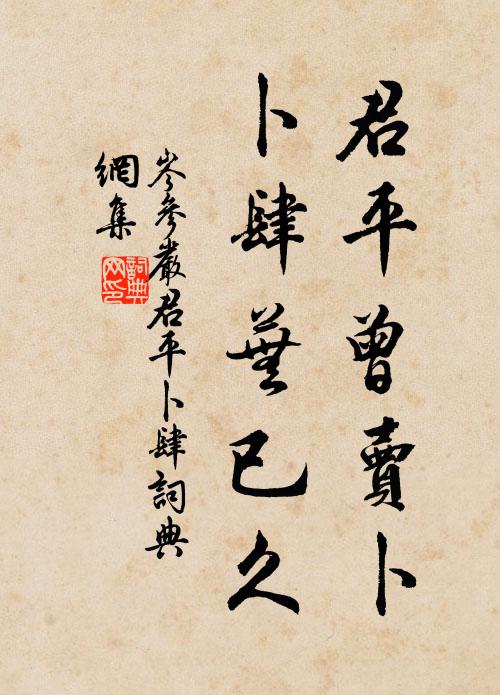 君平曾賣卜
卜肆蕪已久
岑參嚴君平卜肆詞典
網集
詞典
网印